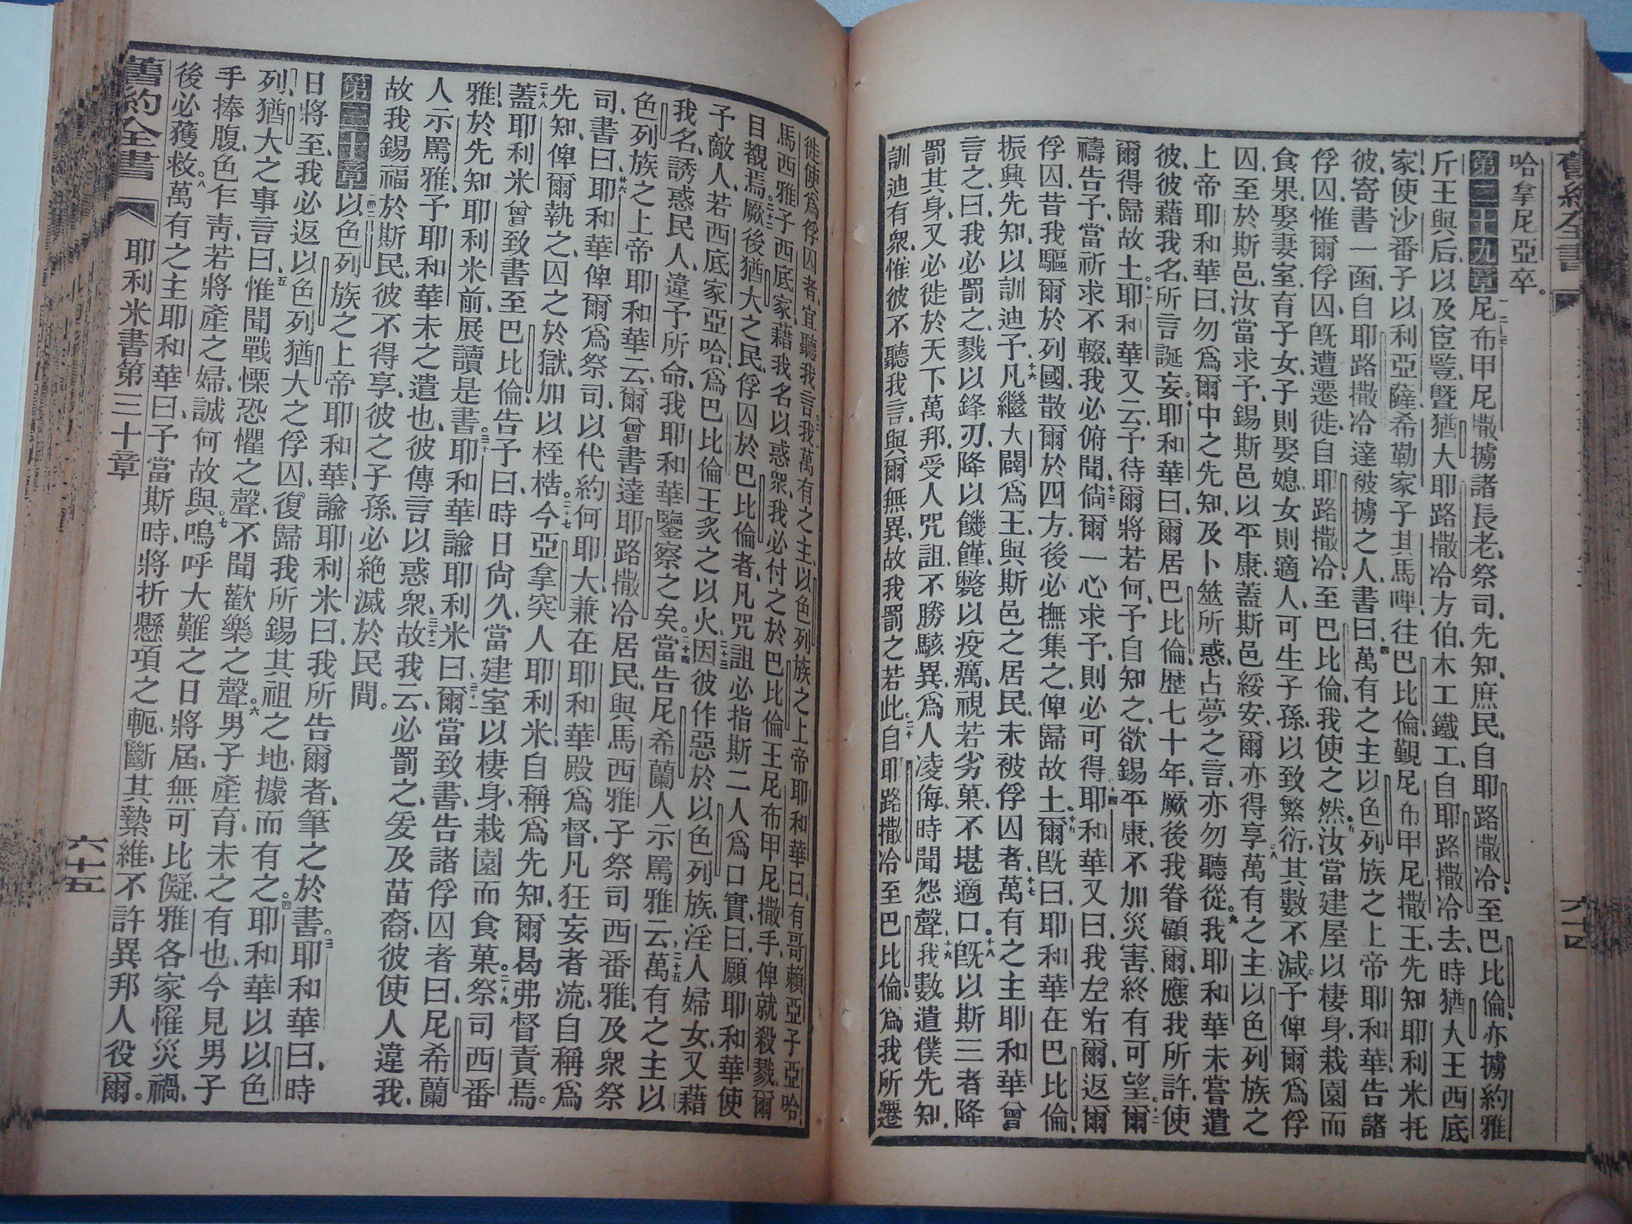 哈拿尼亞卒。
第二十九章尼布甲尼撒擄諸長老、祭司、先知、庶民、自耶路撒冷、至巴比倫、亦擄約雅
斤王與后、以及宦豎、曁猶大耶路撒冷方伯、木工鐵工、自耶路撒冷去、時猶大王西底
家使沙番子以利亞薩、希勒家子其馬哩、往巴比倫、覲尼布甲尼撒王、先知耶利米托
彼、寄書一函、自耶路撒冷、達被擄之人、書曰、萬有之主、以色列族之上帝耶和華告諸
俘囚、惟爾俘囚、旣遭遷徙、自耶路撒冷、至巴比倫、我使之然、汝當建屋以棲身、栽園而
食果、娶妻室、育子女、子則娶媳、女則適人、可生子孫、以致繁衍、其數不減、予俾爾爲俘
囚、至於斯邑、汝當求予、錫斯邑以平康、蓋斯邑綏安、爾亦得享、萬有之主、以色列族之
上帝耶和華曰、勿爲爾中之先知、及卜筮所惑、占夢之言、亦勿聽從、我耶和華未嘗遣
彼、彼藉我名、所言誕妄、耶和華曰、爾居巴比倫、歷七十年、厥後我眷顧爾、應我所許、使
爾得歸故土、耶和華又云、予待爾將若何、予自知之、欲錫平康、不加災害、終有可望、爾
禱告予、當祈求不輟、我必俯聞、倘爾一心求予、則必可得、耶和華又曰、我左右爾、返爾
俘囚、昔我驅爾於列國、散爾於四方、後必撫集之、俾歸故土、爾旣曰、耶和華在巴比倫、
振興先知、以訓迪予、凡繼大闢爲王、與斯邑之居民、未被俘囚者、萬有之主耶和華曾
言之曰、我必罰之、戮以鋒刃、降以饑饉、斃以疫癘、視若劣菓、不堪適口、旣以斯三者降
罰其身、又必徙於天下萬邦、受人咒詛、不勝駭異、爲人凌侮、時聞怨聲、我數遣僕先知、
訓迪有衆、惟彼不聽我言、與爾無異、故我罰之若此、自耶路撒冷至巴比倫、爲我所遷
徙使爲俘囚者、宜聽我言、我萬有之主、以色列族之上帝耶和華曰、有哥賴亞子亞哈、
馬西雅子西底家、藉我名以惑衆、我必付之於巴比倫王尼布甲尼撒手、俾就殺戮、爾
目覩焉、厥後猶大之民、俘囚於巴比倫者、凡咒詛必指斯二人爲口實、曰、願耶和華使
予敵人、若西底家亞哈、爲巴比倫王炙之以火、因彼作惡於以色列族、淫人婦女、又藉
我名、誘惑民人、違予所命、我耶和華鑒察之矣、當告尼希蘭人示罵雅云、萬有之主、以
色列族之上帝耶和華云、爾曾書達耶路撒冷居民、與馬西雅子祭司西番雅、及衆祭
司、書曰、耶和華俾爾爲祭司、以代約何耶大、兼在耶和華殿爲督、凡狂妄者流、自稱爲
先知、俾爾執之、囚之於獄、加以桎梏、今亞拿突人耶利米、自稱爲先知、爾曷弗督責焉。
蓋耶利米曾致書至巴比倫、告予曰、時日尙久、當建室以棲身、栽園而食菓、祭司西番
雅、於先知耶利米前、展讀是書、耶和華諭耶利米曰、爾當致書、告諸俘囚者曰、尼希蘭
人示罵雅、予耶和華未之遣也、彼傳言以惑衆、故我云、必罰之、爰及苗裔、彼使人違我、
故我錫福於斯民、彼不得享、彼之子孫、必絕滅於民間。
第三十章以色列族之上帝耶和華諭耶利米曰、我所告爾者、筆之於書、耶和華曰、時
日將至、我必返以色列猶大之俘囚、復歸我所錫其祖之地、據而有之、耶和華以以色
列猶大之事言曰、惟聞戰慄恐懼之聲、不聞歡樂之聲、男子產育、未之有也、今見男子
手捧腹、色乍靑、若將產之婦、誠何故與、嗚呼、大難之日將屆、無可比儗、雅各家罹災禍、
後必獲救、萬有之主耶和華曰、予當斯時、將折懸項之軛、斷其縶維、不許異邦人役爾。
舊約全書
耶利米書第三十章
六十五
舊約全書
六十四